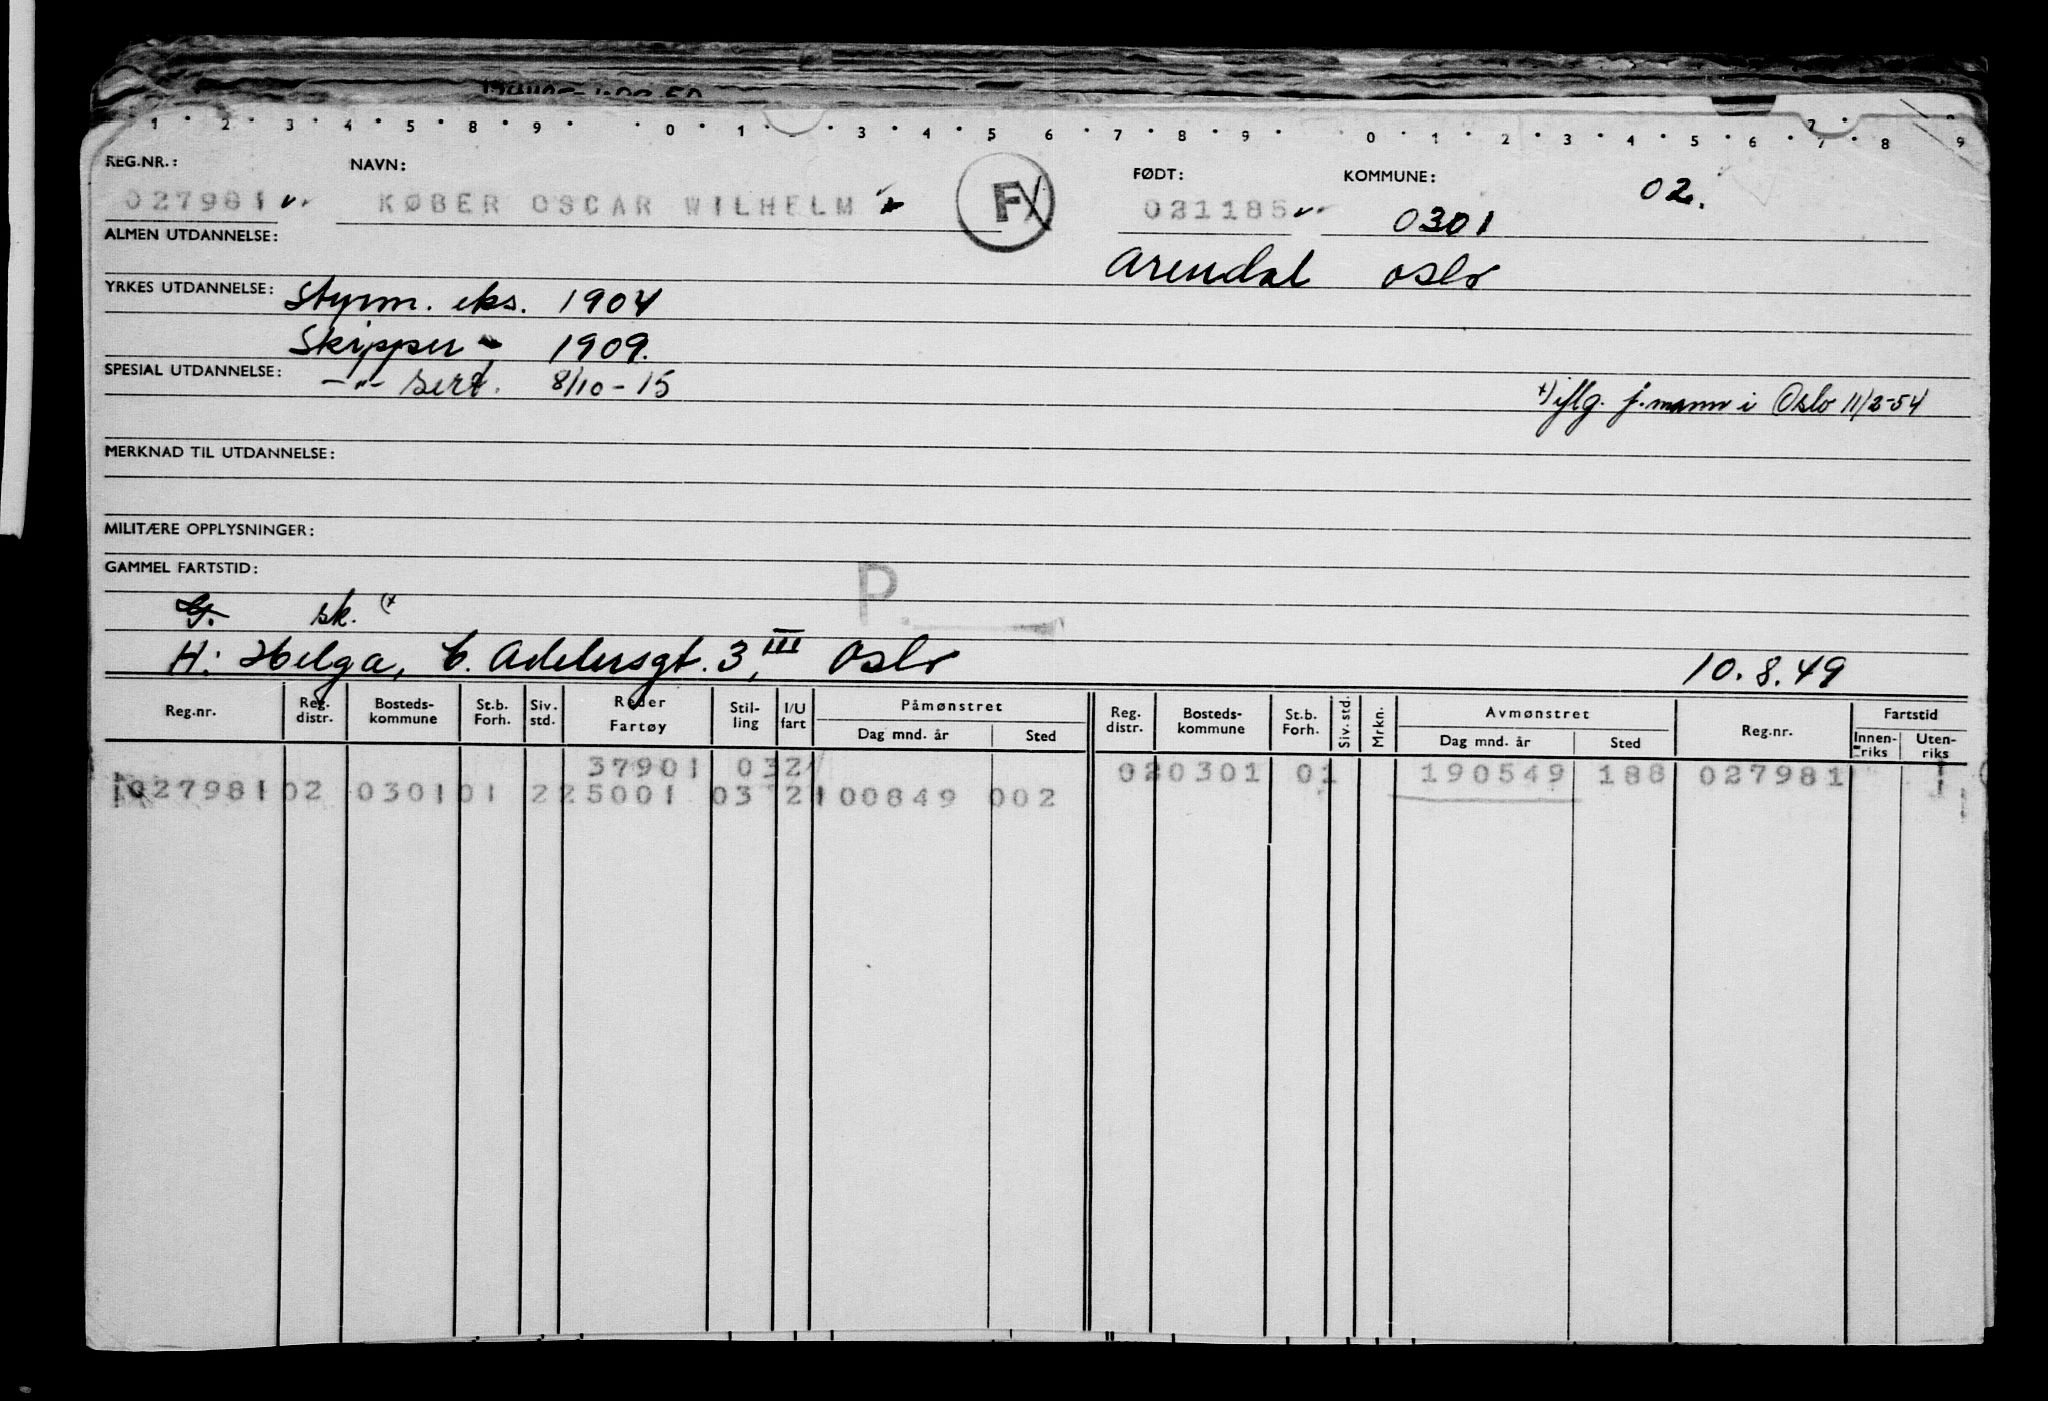 1 2 3 4 5 8 9 0 1 3 4 5 6 7 8 9 0 1 2 3 4 5 6 7 8 9
REG.NR.: NAVN: FØDT: KOMMUNE: 02.
027981 KØBER OSCAR WILHELM F 021185 0301
ALMEN UTDANNELSE: Arendal Oslo
YRKES UTDANNELSE: Styrm. eks. 1904
Skipper " 1909.
SPESIAL UTDANNELSE: -"- sert. 8/10-15 +) iflg. f.mann i Oslo 11/2-54
MERKNAD TIL UTDANNELSE:
MILITÆRE OPPLYSNINGER:
GAMMEL FARTSTID: P.
sk. (+
H: Helga, C. Adelersgt. 3, III Oslo 10.8.49
Reg.nr. Reg. distr. Bosteds-kommune St.b. Forh. Siv. std. Reder Fartøy Stil-ling I/U fart Påmønstret Dag mnd. år Sted Reg. distr. Bosteds-kommune St.b. Forh. Siv. std. Mrkn. Avmønstret Dag mnd. år Sted Reg.nr. Fartstid Innen-riks Uten-riks
37901 032 020301 01 190549 188 027981
027981 02 0301 01 2 25001 03 2 100849 002